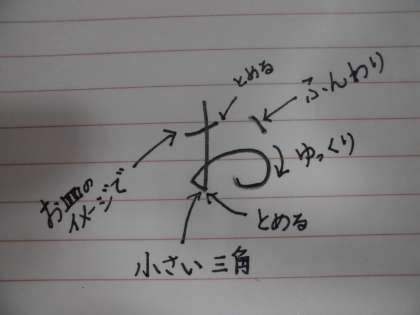 とめる
ふんわり
お
ゆっくり
お皿の
イメージで
とめる
小さい三角